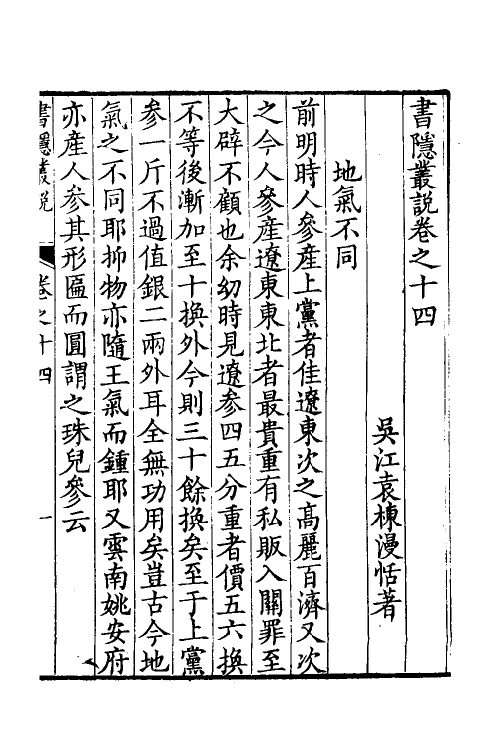 書隱叢說卷之十四
吳江袁棟漫恬著
地氣不同
前明時人參產上黨者佳遼東次之高麗百濟又次
之今人參產遼東東北者最貴重有私販入關罪至
大辟不顧也余幼時見遼參四五分重者價五六換
不等後漸加至十換外今則三十餘換矣至于上黨
參一斤不過值銀二兩外耳全無功用矣豈古今地
氣之不同耶抑物亦隨王氣而鍾耶又雲南姚安府
亦產人參其形匾而圓謂之珠兒參云
書隱叢說 卷之十四 一